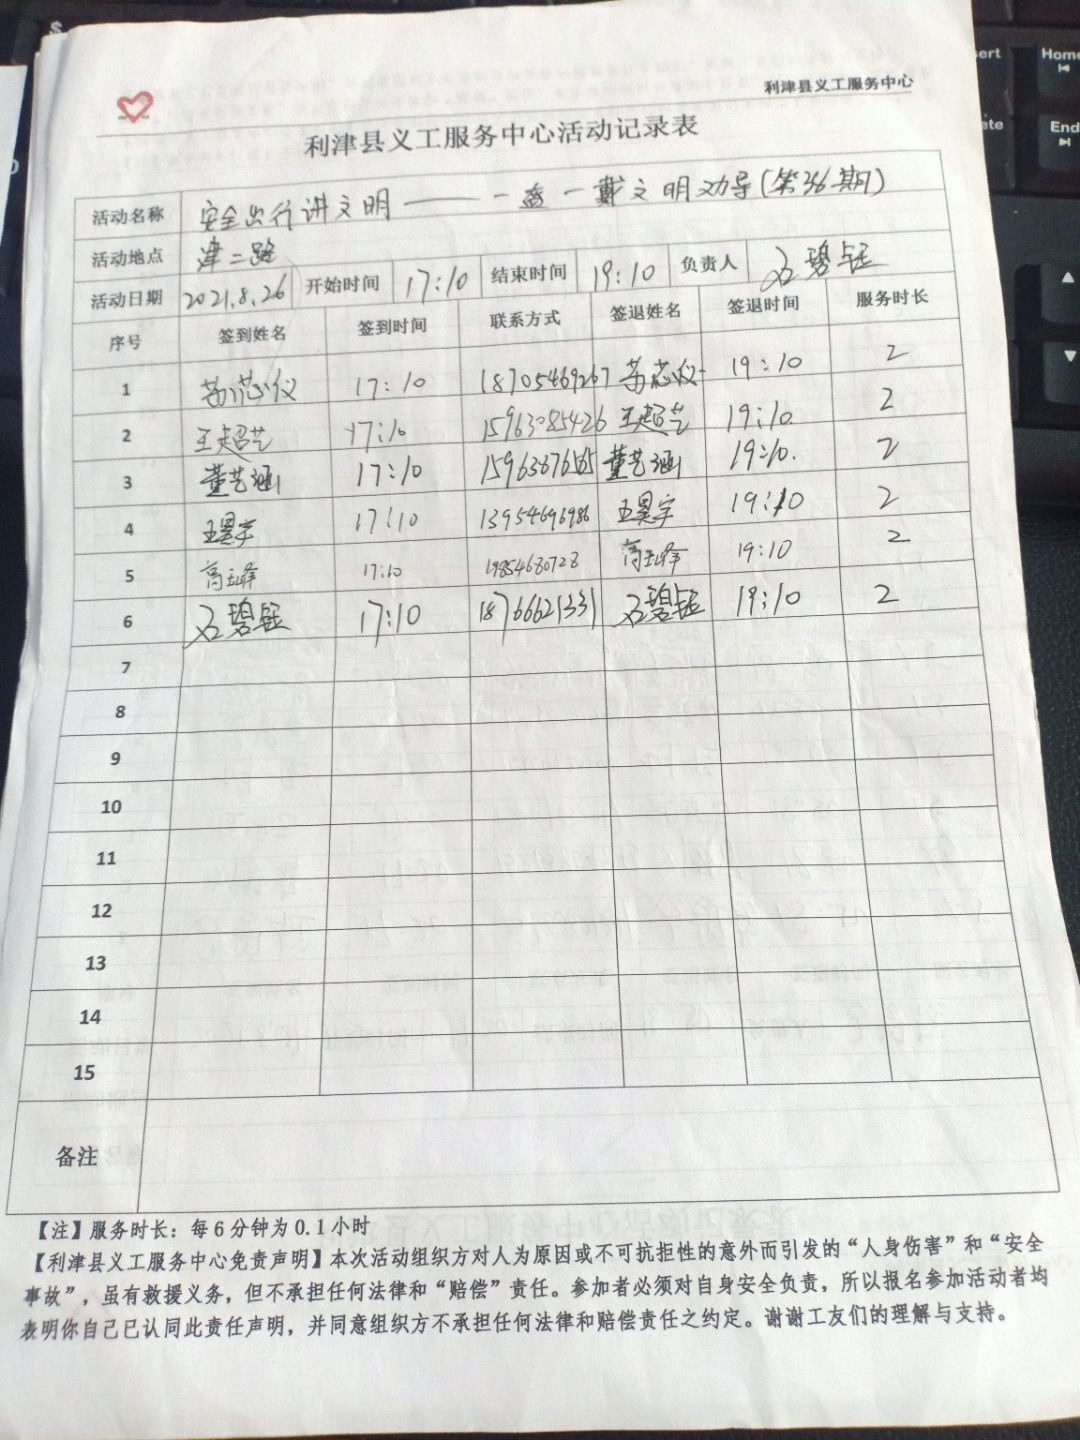 利津县义工服务中心
利津县义工服务中心活动记录表
活动名称 安全出行讲文明——一盔一戴文明劝导(第36期)
活动地点 津二路
活动日期 2021.8.26 开始时间 17:10 结束时间 19:10 负责人 石碧钰
序号 签到姓名 签到时间 联系方式 签退姓名 签退时间 服务时长
1 苏芯仪 17:10 18705469267 苏芯仪 19:10 2
2 王超艺 17:10 15963085426 王超艺 19:10. 2
3 董艺涵 17:10 15963876565 董艺涵 19:10. 2
4 王昊宇 17:10 13954696986 王昊宇 19:10 2
5 17:10 19854680728 19:10 2
6 石碧钰 17:10 18766621331 石碧钰 19:10 2
7
8
9
10
11
12
13
14
15
备注
【注】服务时长：每6分钟为0.1小时
【利津县义工服务中心免责声明】本次活动组织方对人为原因或不可抗拒性的意外而引发的“人身伤害”和“安全
事故”，虽有救援义务，但不承担任何法律和“赔偿”责任。参加者必须对自身安全负责，所以报名参加活动者均
表明你自己已认同此责任声明，并同意组织方不承担任何法律和赔偿责任之约定。谢谢工友们的理解与支持。
Home
End